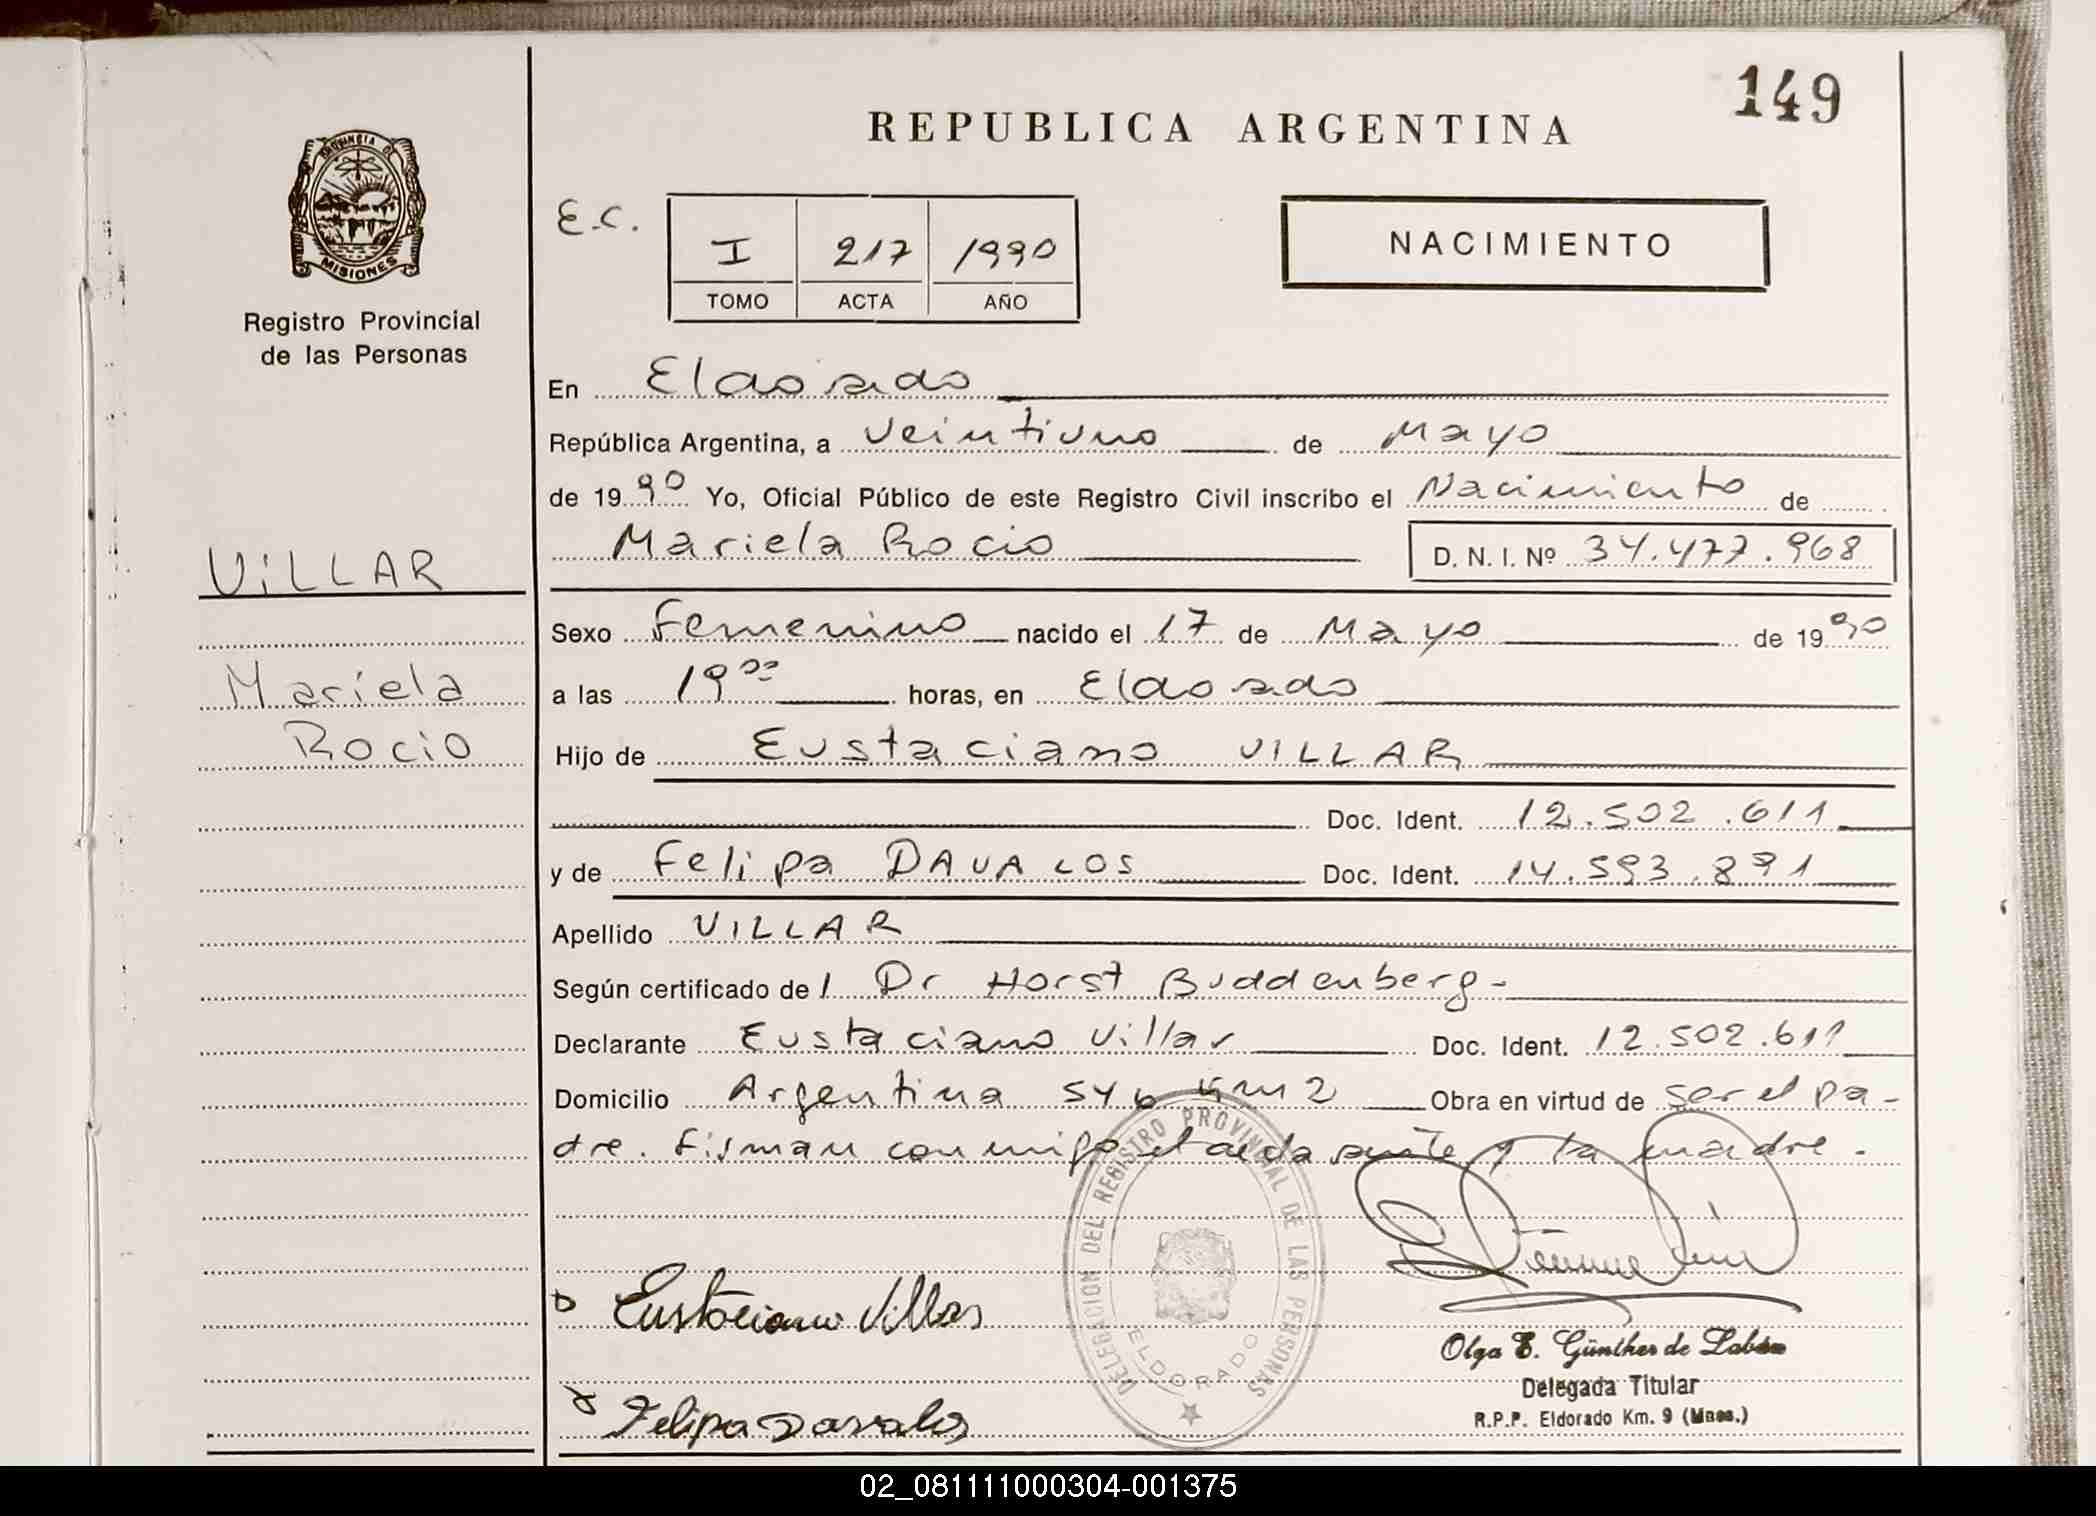 149
REPUBLICA ARGENTINA
PROVINCIA DE
MISIONES
Registro Provincial
de las Personas
E.C.
I 217 1990
TOMO ACTA AÑO
NACIMIENTO
En Eldorado
República Argentina, a veintiuno de Mayo
de 1990 Yo, Oficial Público de este Registro Civil inscribo el Nacimiento de
Mariela Rocio D. N. I. Nº 34.477.968
VILLAR
Mariela
Rocio
Sexo Femenino nacido el 17 de Mayo de 1990
a las 19 00 horas, en Eldorado
Hijo de Eustaciano VILLAR
Doc. Ident. 12.502.611
y de Felipa DAVALOS Doc. Ident. 14.593.891
Apellido VILLAR
Según certificado de l Dr Horst Buddenberg-
Declarante Eustaciano Villar Doc. Ident. 12.502.611
Domicilio Argentina 546 Km 2 Obra en virtud de ser el pa-
dre. Firman conmigo el declarante y la madre.
DELEGACION DEL REGISTRO PROVINCIAL DE LAS PERSONAS
ELDORADO
Eustaciano Villar
Felipa Davalos
Olga E. Günther de Labán
Delegada Titular
R.P.P. Eldorado Km. 9 (Mnes.)
02_081111000304-001375